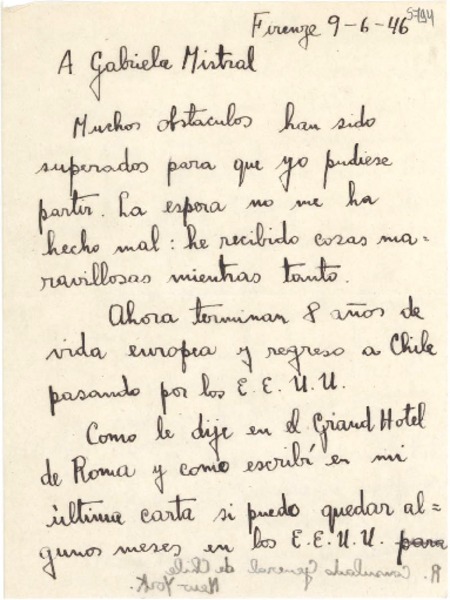 Firenze 9-6-46
5794
A Gabriela Mistral
Muchos obstaculos han sido
superados para que yo pudiese
partir. La espera no me ha
hecho mal: he recibido cosas ma=
ravillosas mientras tanto.
Ahora terminan 8 años de
vida europea y regreso a Chile
pasando por los E.E.U.U.
Como le dije en el Grand Hotel
de Roma y como escribí en mi
última carta si puedo quedar al=
gunos meses en los E.E.U.U. para
R. Consulado General de Chile
New-York.